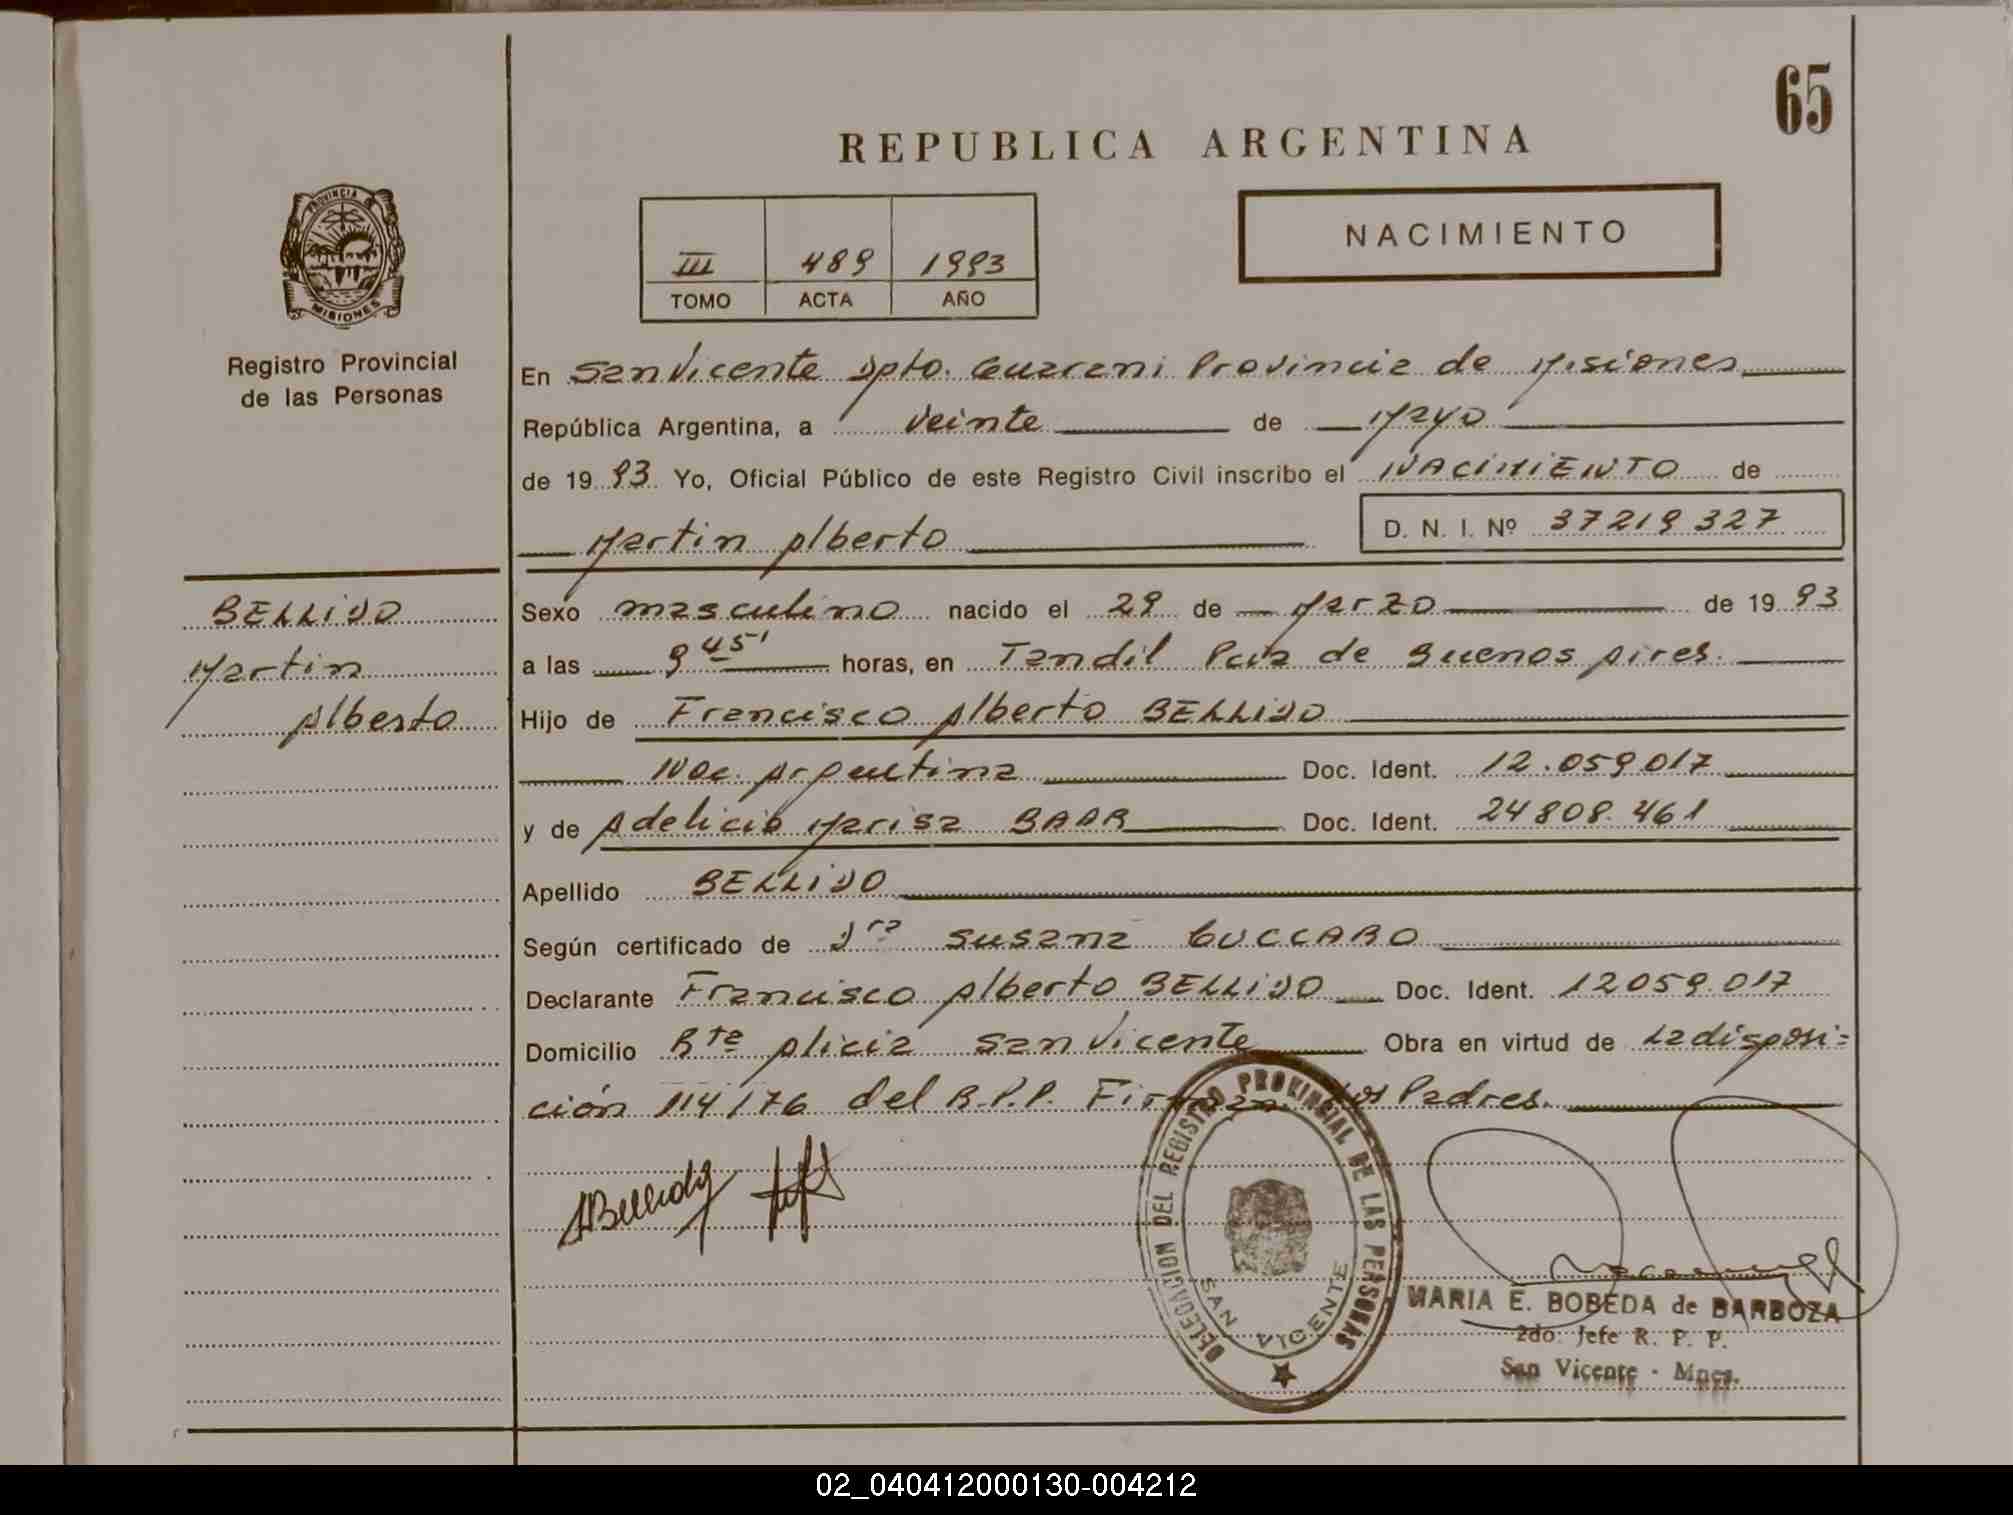 65
REPUBLICA ARGENTINA
PROVINCIA DE
MISIONES
Registro Provincial
de las Personas
NACIMIENTO
III 489 1993
TOMO ACTA AÑO
En San Vicente Dpto. Guarani Provincia de Misiones
República Argentina, a veinte de Mayo
de 1993 Yo, Oficial Público de este Registro Civil inscribo el NACIMIENTO de
Martin Alberto D. N. I. Nº 37219327
BELLIDO
Martin
Alberto
Sexo masculino nacido el 29 de Marzo de 1993
a las 9 45' horas, en Tandil Pcia de Buenos Aires.
Hijo de Francisco Alberto BELLIDO
Nac. Argentina Doc. Ident. 12.059.017
y de Adelicia Marisa BAAR Doc. Ident. 24808.461
Apellido BELLIDO
Según certificado de Dra Susana GUCCARO
Declarante Francisco Alberto BELLIDO Doc. Ident. 12059.017
Domicilio Rta Alicia San Vicente Obra en virtud de La disposi=
ción 114/76 del R.P.P. Firman Los Padres.
ABellido
DELEGACION DEL REGISTRO PROVINCIAL DE LAS PERSONAS
SAN VICENTE
MARIA E. BOBEDA de BARBOZA
2do. Jefe R. P. P.
San Vicente - Mnes.
02_040412000130-004212